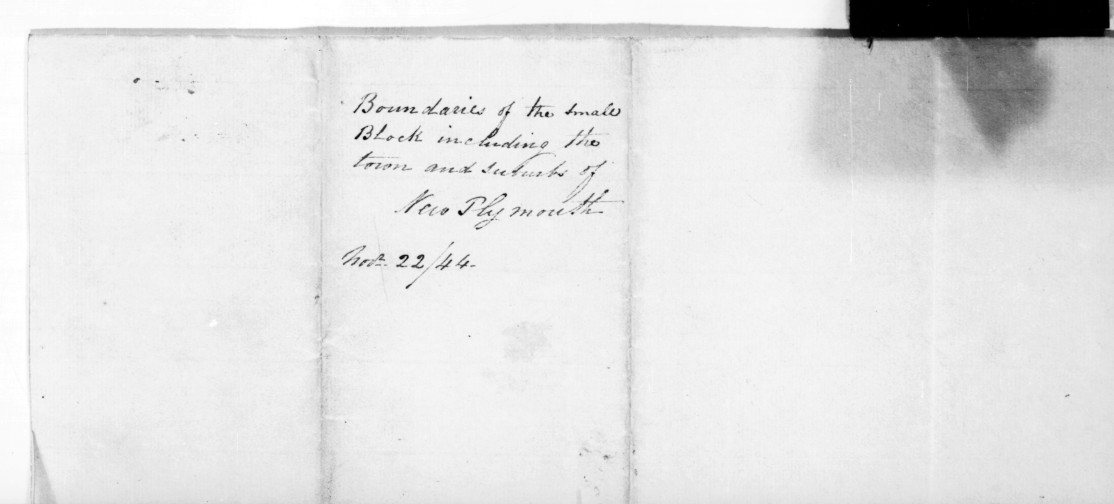 Boundaries of the small
Block including the
town and suburbs of
New Plymouth
Novr. 22/44.